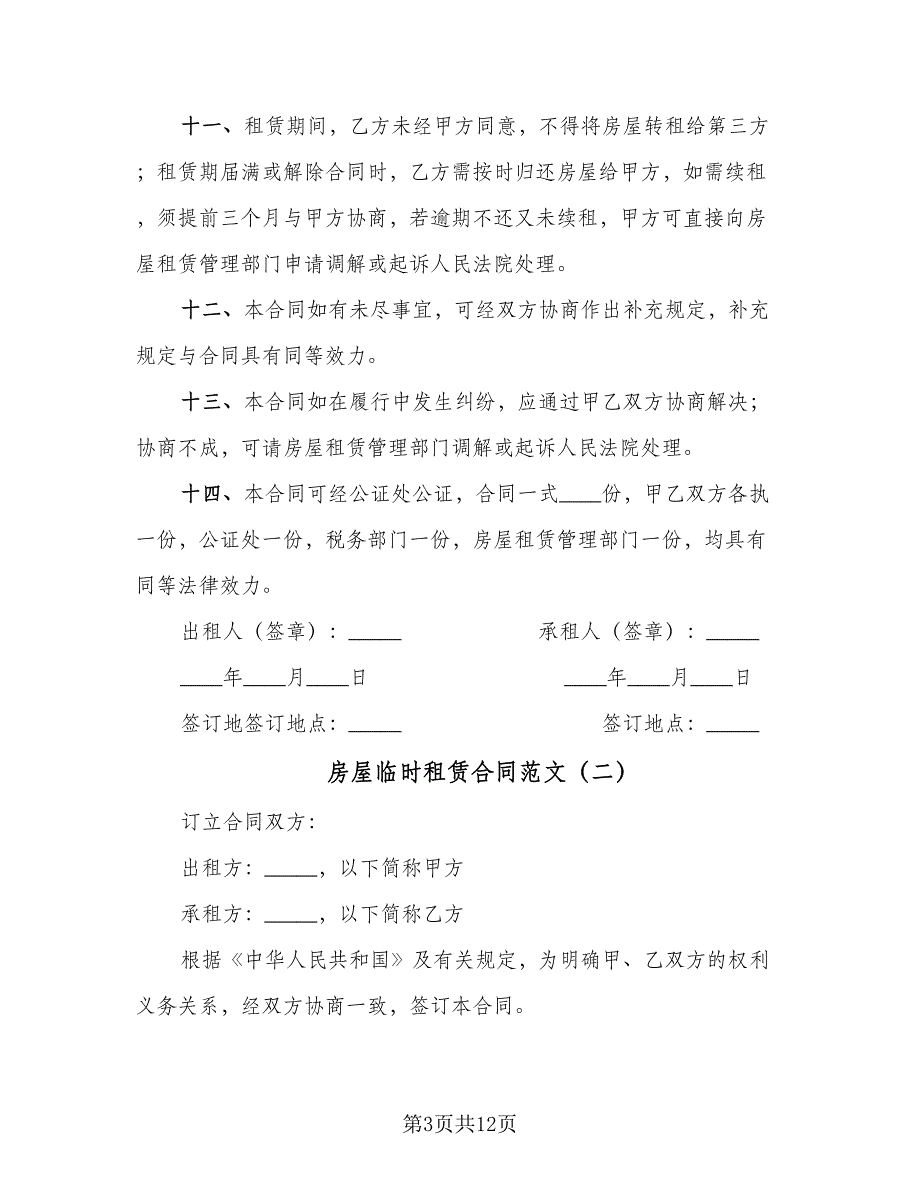 十一、租赁期间，乙方未经甲方同意，不得将房屋转租给第三方
；租赁期届满或解除合同时，乙方需按时归还房屋给甲方，如需续租
，须提前三个月与甲方协商，若逾期不还又未续租，甲方可直接向房
屋租赁管理部门申请调解或起诉人民法院处理。
十二、本合同如有未尽事宜，可经双方协商作出补充规定，补充
规定与合同具有同等效力。
十三、本合同如在履行中发生纠纷，应通过甲乙双方协商解决；
协商不成，可请房屋租赁管理部门调解或起诉人民法院处理。
十四、本合同可经公证处公证，合同一式____份，甲乙双方各执
一份，公证处一份，税务部门一份，房屋租赁管理部门一份，均具有
同等法律效力。
出租人（签章）：_____ 承租人（签章）：_____
____年____月____日 ____年____月____日
签订地签订地点：_____ 签订地点：_____
房屋临时租赁合同范文（二）
订立合同双方：
出租方：_____，以下简称甲方
承租方：_____，以下简称乙方
根据《中华人民共和国》及有关规定，为明确甲、乙双方的权利
义务关系，经双方协商一致，签订本合同。
第3页共12页